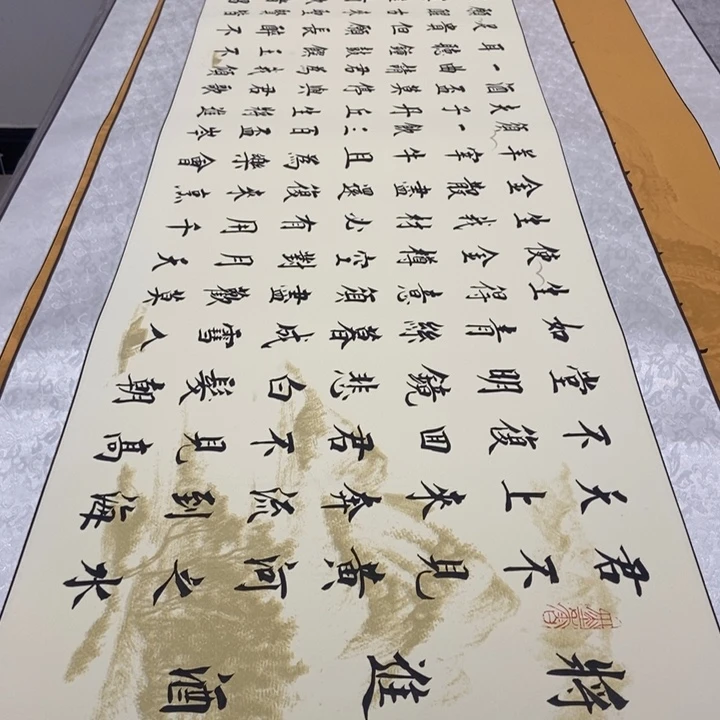 將進酒
君不見黃河之水
天上來奔流到海
不復回君不見高
堂明鏡悲白髮朝
如青絲暮成雪人
生得意須盡歡莫
使金樽空對月天
生我材必有用千
金散盡還復來烹
羊宰牛且為樂會
須一飲三百盃岑
夫子丹丘生將進
酒盃莫停與君歌
一曲請君為我傾
耳聽鐘鼓饌玉不
足貴但願長醉不